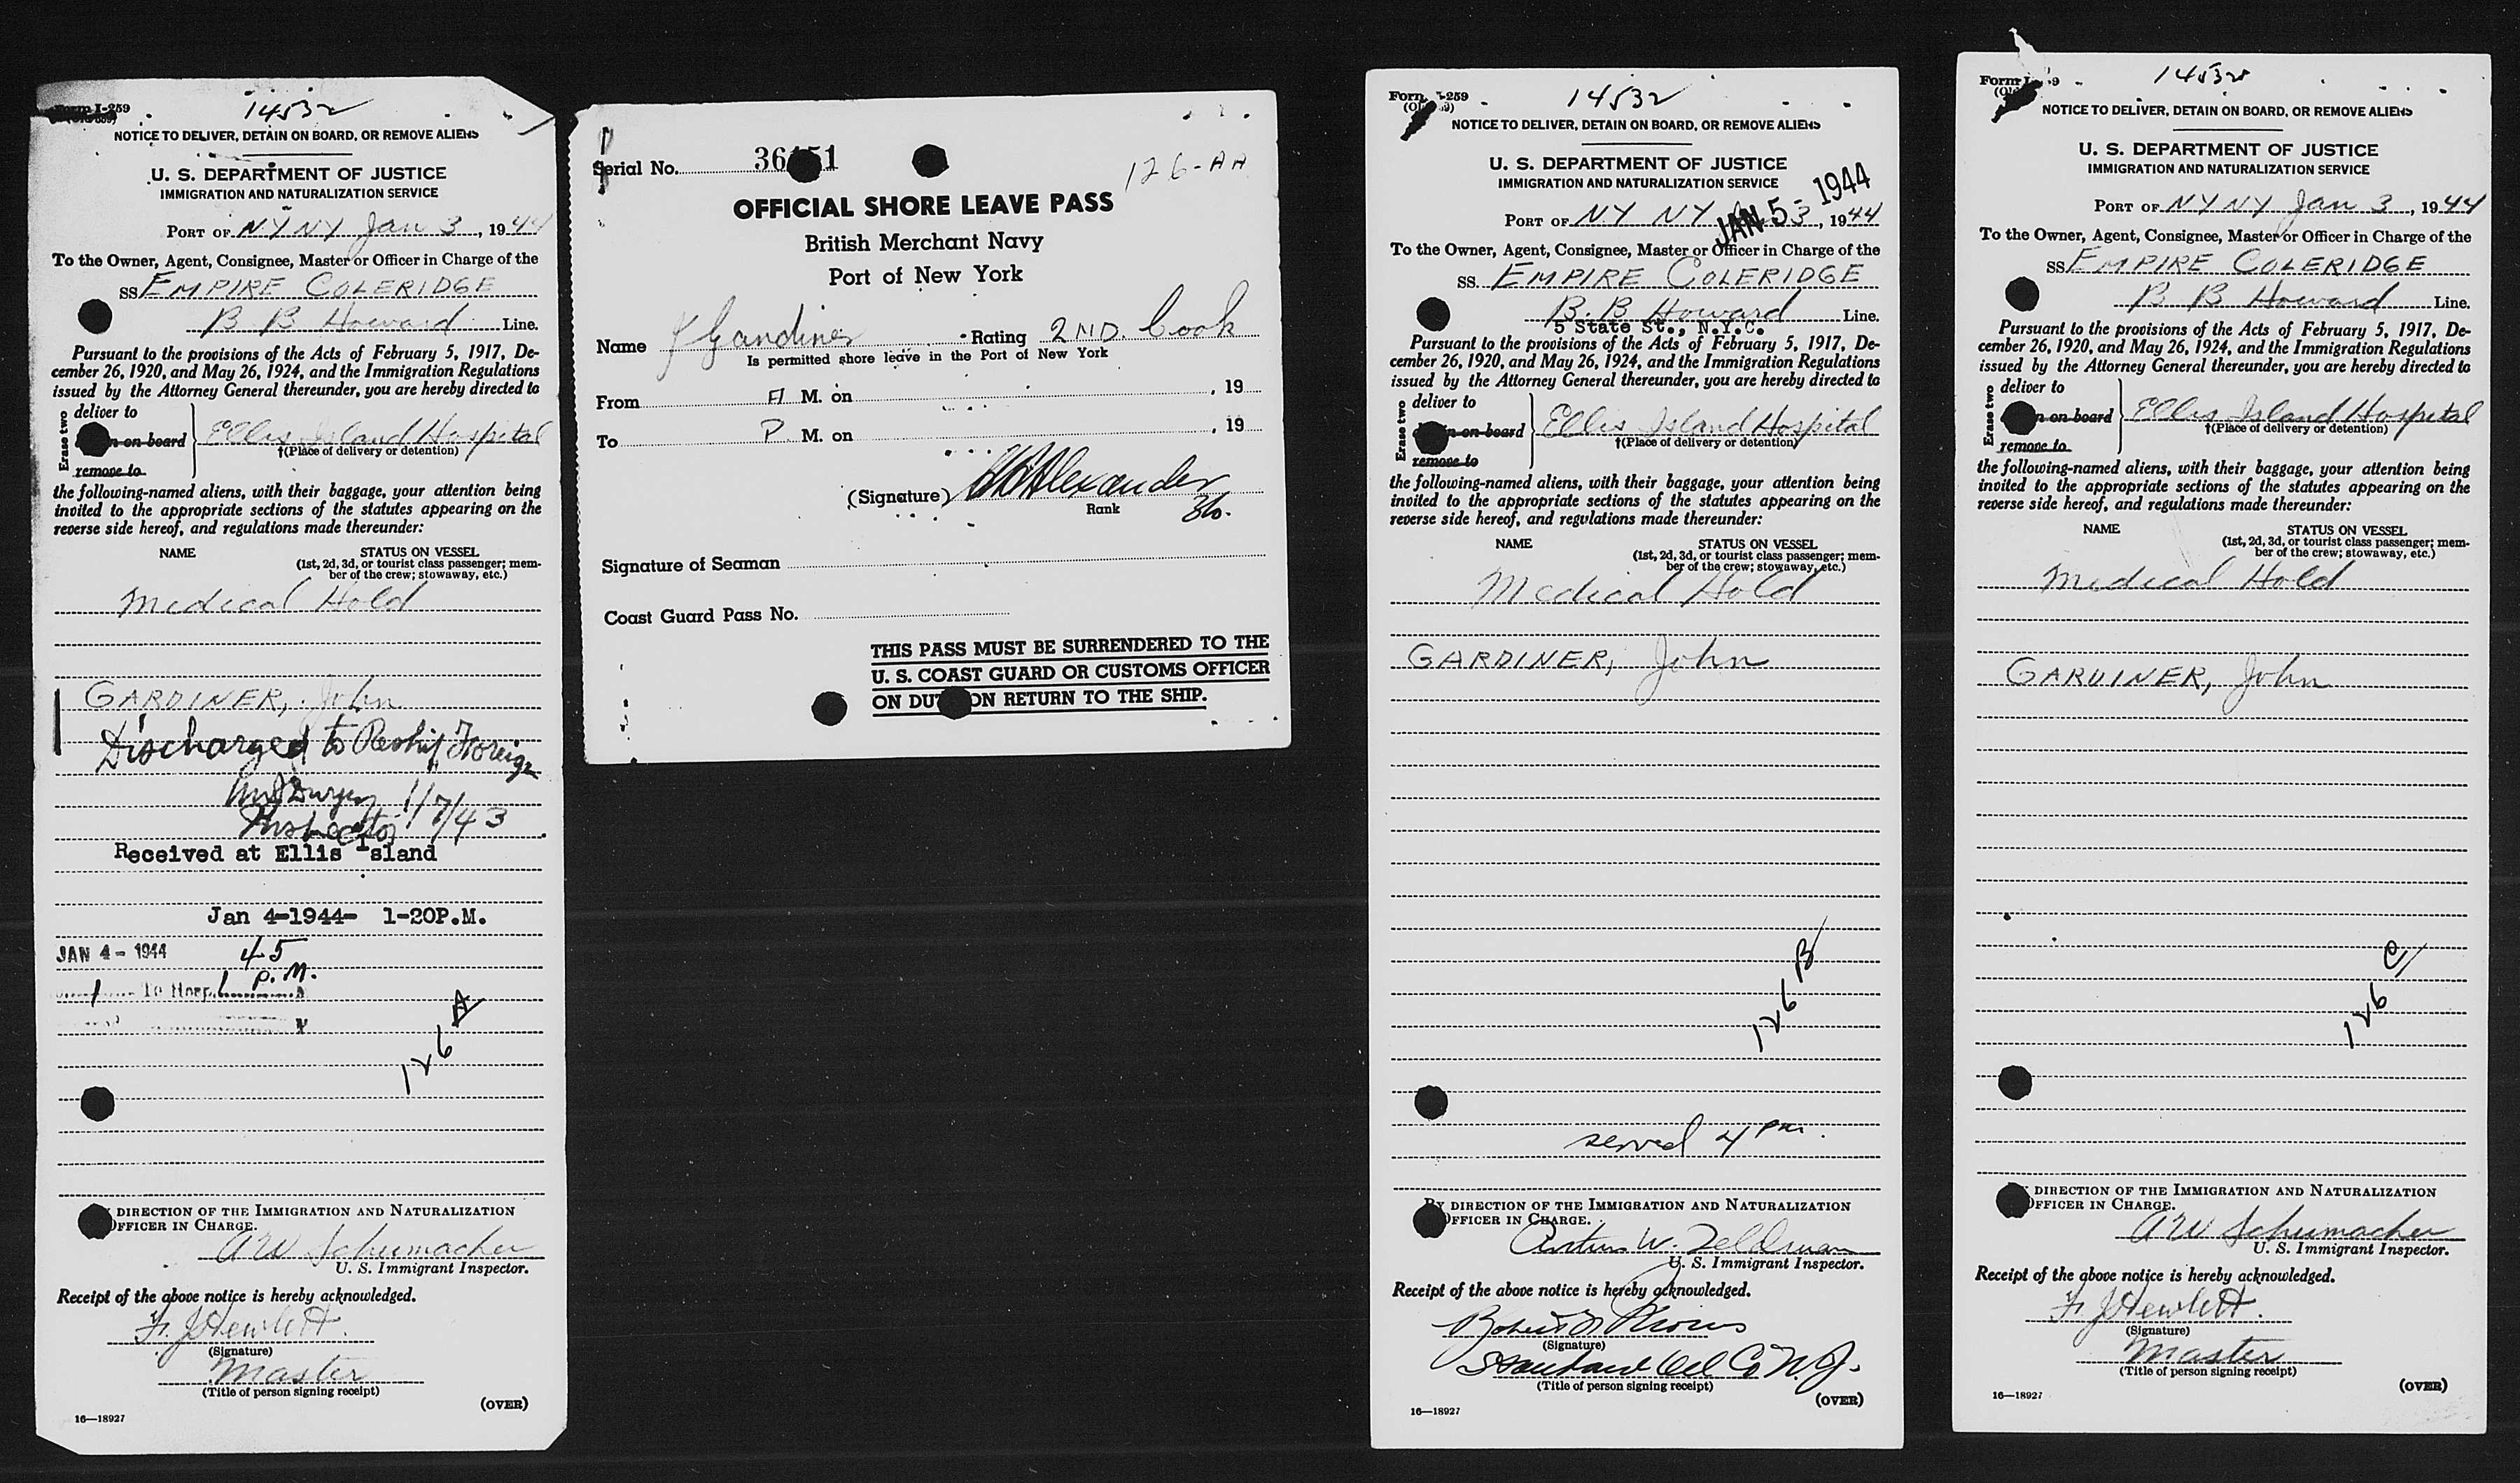 Form I-259
14532
NOTICE TO DELIVER, DETAIN ON BOARD, OR REMOVE ALIENS
U. S. DEPARTMENT OF JUSTICE
IMMIGRATION AND NATURALIZATION SERVICE
PORT OF NY NY Jan 3, 1944
To the Owner, Agent, Consignee, Master or Officer in Charge of the
SS EMPIRE COLERIDGE
B B Howard Line.
Pursuant to the provisions of the Acts of February 5, 1917, De-
cember 26, 1920, and May 26, 1924, and the Immigration Regulations
issued by the Attorney General thereunder, you are hereby directed to
Erase two
deliver to
on board
remove to
Ellis Island Hospital
†(Place of delivery or detention)
the following-named aliens, with their baggage, your attention being
invited to the appropriate sections of the statutes appearing on the
reverse side hereof, and regulations made thereunder:
NAME STATUS ON VESSEL
(1st, 2d, 3d, or tourist class passenger; mem-
ber of the crew; stowaway, etc.)
Medical Hold
GARDINER, John
Discharged to Reship Foreign
Inspector 1/7/43
Received at Ellis Island
Jan 4-1944- 1-20P.M.
JAN 4 - 1944 45
1 P.M.
1 To Hosp.
126 A
DIRECTION OF THE IMMIGRATION AND NATURALIZATION
OFFICER IN CHARGE.
A W Schumacher
U. S. Immigrant Inspector.
Receipt of the above notice is hereby acknowledged.
F. J Hewlett.
(Signature)
Master
(Title of person signing receipt)
(OVER)
16—18927
Serial No. 36151
126-AA
OFFICIAL SHORE LEAVE PASS
British Merchant Navy
Port of New York
Name J Gardiner Rating 2ND. Cook
Is permitted shore leave in the Port of New York
From A M. on , 19
To P. M. on , 19
(Signature) Alexander
Rank
Signature of Seaman
Coast Guard Pass No.
THIS PASS MUST BE SURRENDERED TO THE
U. S. COAST GUARD OR CUSTOMS OFFICER
ON DUTY ON RETURN TO THE SHIP.
Form I-259
14532
NOTICE TO DELIVER, DETAIN ON BOARD, OR REMOVE ALIENS
U. S. DEPARTMENT OF JUSTICE
IMMIGRATION AND NATURALIZATION SERVICE
JAN 5- 1944
PORT OF NY NY 3, 1944
To the Owner, Agent, Consignee, Master or Officer in Charge of the
SS. EMPIRE COLERIDGE
B. B Howard Line.
5 State St., N.Y.C.
Pursuant to the provisions of the Acts of February 5, 1917, De-
cember 26, 1920, and May 26, 1924, and the Immigration Regulations
issued by the Attorney General thereunder, you are hereby directed to
Erase two
deliver to
on board
remove to
Ellis Island Hospital
†(Place of delivery or detention)
the following-named aliens, with their baggage, your attention being
invited to the appropriate sections of the statutes appearing on the
reverse side hereof, and regulations made thereunder:
NAME STATUS ON VESSEL
(1st, 2d, 3d, or tourist class passenger; mem-
ber of the crew; stowaway, etc.)
Medical Hold
GARDINER, John
126 B
served 4 pm.
BY DIRECTION OF THE IMMIGRATION AND NATURALIZATION
OFFICER IN CHARGE.
W. Feldman
U. S. Immigrant Inspector.
Receipt of the above notice is hereby acknowledged.
Robert
(Signature)
Standard Oil Co N. J.
(Title of person signing receipt)
(OVER)
16—18927
14532
NOTICE TO DELIVER, DETAIN ON BOARD, OR REMOVE ALIENS
U. S. DEPARTMENT OF JUSTICE
IMMIGRATION AND NATURALIZATION SERVICE
PORT OF NY NY Jan 3, 1944
To the Owner, Agent, Consignee, Master or Officer in Charge of the
SS EMPIRE COLERIDGE
B B Howard Line.
Pursuant to the provisions of the Acts of February 5, 1917, De-
cember 26, 1920, and May 26, 1924, and the Immigration Regulations
issued by the Attorney General thereunder, you are hereby directed to
Erase two
deliver to
on board
remove to
Ellis Island Hospital
†(Place of delivery or detention)
the following-named aliens, with their baggage, your attention being
invited to the appropriate sections of the statutes appearing on the
reverse side hereof, and regulations made thereunder:
NAME STATUS ON VESSEL
(1st, 2d, 3d, or tourist class passenger; mem-
ber of the crew; stowaway, etc.)
Medical Hold
GARDINER, John
126 C
DIRECTION OF THE IMMIGRATION AND NATURALIZATION
OFFICER IN CHARGE.
A W Schumacher
U. S. Immigrant Inspector.
Receipt of the above notice is hereby acknowledged.
F. J Hewlett.
(Signature)
Master
(Title of person signing receipt)
(OVER)
16—18927